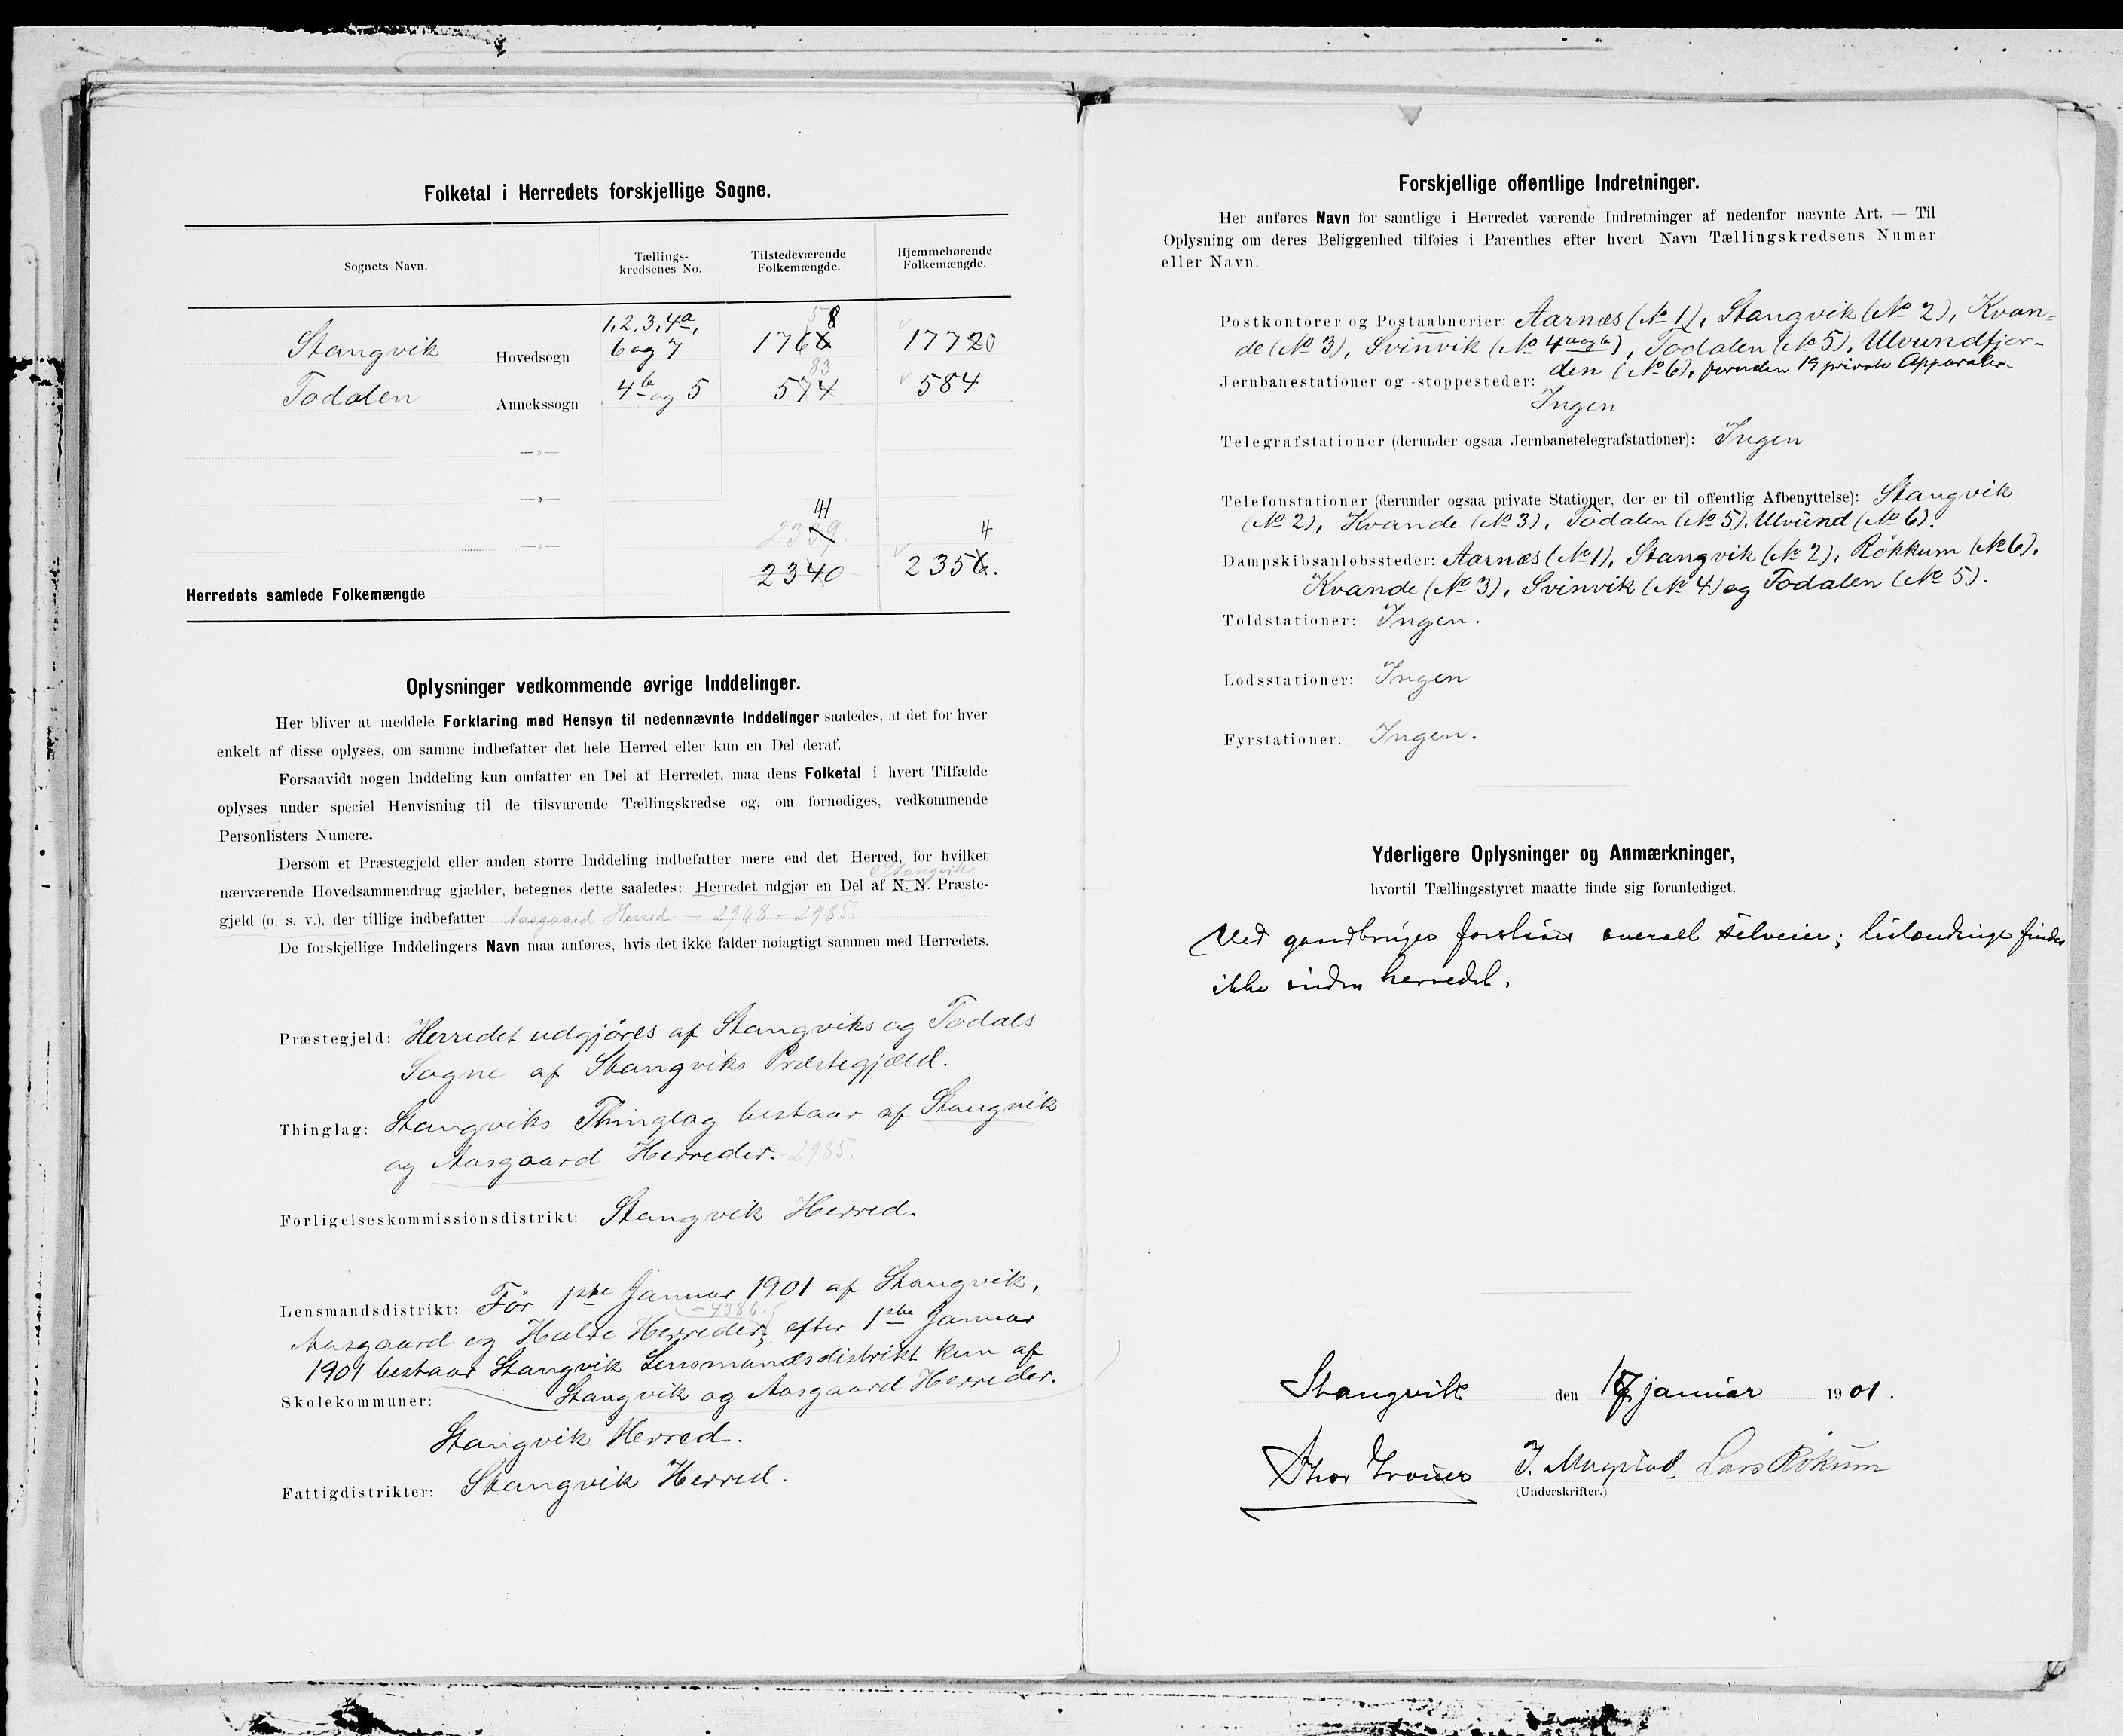 Folketal i Herredets forskjellige Sogne.
Sognets Navn. Tællings-kredsenes No. Tilstedeværende Folkemængde. Hjemmehørende Folkemængde.
1, 2, 3, 4a, 58
Stangvik Hovedsogn 6 og 7 1766 17720
83
Todalen Annekssogn 4b og 5 574 584
— » —
— » —
41
— » — 2339. 4
Herredets samlede Folkemængde 2340 2356.
Oplysninger vedkommende øvrige Inddelinger.
Her bliver at meddele Forklaring med Hensyn til nedennævnte Inddelinger saaledes, at det for hver
enkelt af disse oplyses, om samme indbefatter det hele Herred eller kun en Del deraf.
Forsaavidt nogen Inddeling kun omfatter en Del af Herredet, maa dens Folketal i hvert Tilfælde
oplyses under speciel Henvisning til de tilsvarende Tællingskredse og, om fornødiges, vedkommende
Personlisters Numere.
Dersom et Præstegjeld eller anden større Inddeling indbefatter mere end det Herred, for hvilket
Stangvik
nærværende Hovedsammendrag gjælder, betegnes dette saaledes: Herredet udgjør en Del af N. N. Præste-
gjeld (o. s. v.), der tillige indbefatter Aasgaard Herred — 2968 — 2985.
De forskjellige Inddelingers Navn maa anføres, hvis det ikke falder nøiagtigt sammen med Herredets.
Præstegjeld: Herredet udgjöres af Stangviks og Todals
Sogne af Stangviks Præstegjæld.
Thinglag: Stangviks Thinglag bestaar af Stangvik
og Aasgaard Herreder. - 2985.
Forligelseskommissionsdistrikt: Stangvik Herred.
Lensmandsdistrikt: För 1ste Januar 1901 af Stangvik,
- 4386.
Aasgaard og Halse Herreder; efter 1ste Januar
1901 bestaar Stangvik Lensmandsdistrikt kun af
Skolekommuner: Stangvik og Aasgaard Herreder.
Stangvik Herred.
Fattigdistrikter: Stangvik Herred.
Forskjellige offentlige Indretninger.
Her anføres Navn for samtlige i Herredet værende Indretninger af nedenfor nævnte Art. — Til
Oplysning om deres Beliggenhed tilføies i Parenthes efter hvert Navn Tællingskredsens Numer
eller Navn.
Postkontorer og Postaabnerier: Aarnæs (No 1), Stangvik (No 2), Kvan-
de (No 3), Svinvik (No 4 a og b), Todalen (No 5), Ulvundfjor-
den (No 6), foruden 19 private Apparater.
Jernbanestationer og -stoppesteder:
Ingen
Telegrafstationer (derunder ogsaa Jernbanetelegrafstationer): Ingen
Telefonstationer (derunder ogsaa private Stationer, der er til offentlig Afbenyttelse): Stangvik
(No 2), Kvande (No 3), Todalen (No 5), Ulvund (No 6).
Dampskibsanløbssteder: Aarnæs (No 1), Stangvik (No 2), Rökkum (No 6),
Kvande (No 3), Svinvik (No 4) og Todalen (No 5).
Toldstationer: Ingen.
Lodsstationer: Ingen
Fyrstationer: Ingen.
Yderligere Oplysninger og Anmærkninger,
hvortil Tællingsstyret maatte finde sig foranlediget.
Ved gaardbruger forstaaes overall selveier; leilændinge findes
ikke inden herredet.
Stangvik den 17 januar 1901.
Lars Rökum
(Underskrifter.)